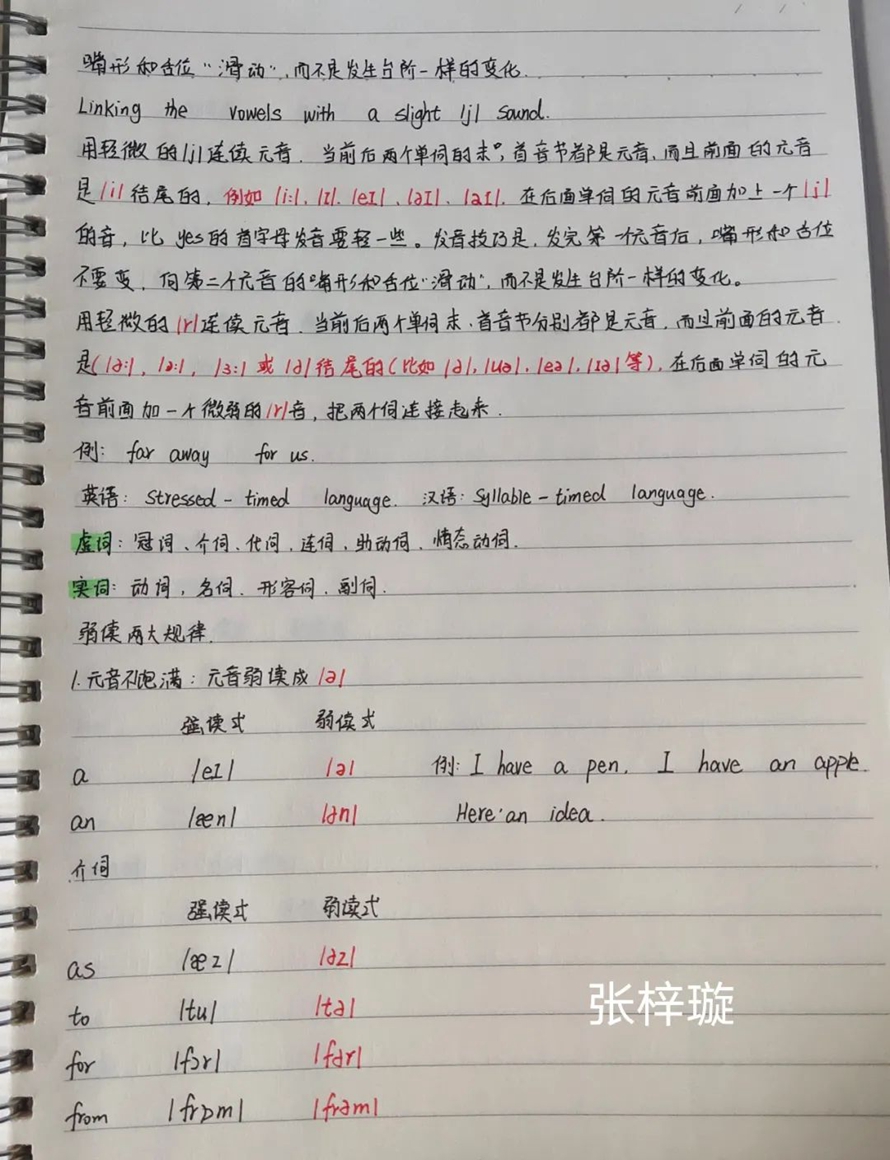 嘴形和舌位“滑动”,而不是发生台阶一样的变化.
Linking the vowels with a slight /j/ sound.
用轻微的/j/连续元音. 当前后两个单词的末,首音节都是元音,而且前面的元音
是/i/结尾的, 例如/i:/, /ɪ/. /eɪ/、/əɪ/、/aɪ/. 在后面单词的元音前面加上一个/j/
的音, 比 yes的首字母发音要轻一些。发音技巧是,发完第一个元音后,嘴形和舌位
不要变, 向第二个元音的嘴形和舌位“滑动”,而不是发生台阶一样的变化。
用轻微的/r/连续元音. 当前后两个单词末、首音节分别都是元音,而且前面的元音
是(/ə:/, /a:/, /ɜ:/ 或 /ə/结尾的(比如/ə/,/uə/./eə/./ɪə/等),在后面单词的元
音前面加一个微弱的/r/音,把两个词连接起来.
例: far away for us.
英语: Stressed-timed language. 汉语: Syllable-timed language.
虚词: 冠词、介词、代词,连词,助动词,情态动词.
实词: 动词,名词.形容词.副词.
弱读两大规律.
1.元音不饱满: 元音弱读成/ə/
强读式 弱读式
a /eɪ/ /ə/ 例: I have a pen. I have an apple.
an /æn/ /ən/ Here's an idea.
介词
强读式 弱读式
as /æz/ /əz/
to /tu/ /tə/
for /fɔr/ /fər/
from /frɒm/ /frəm/
张梓璇